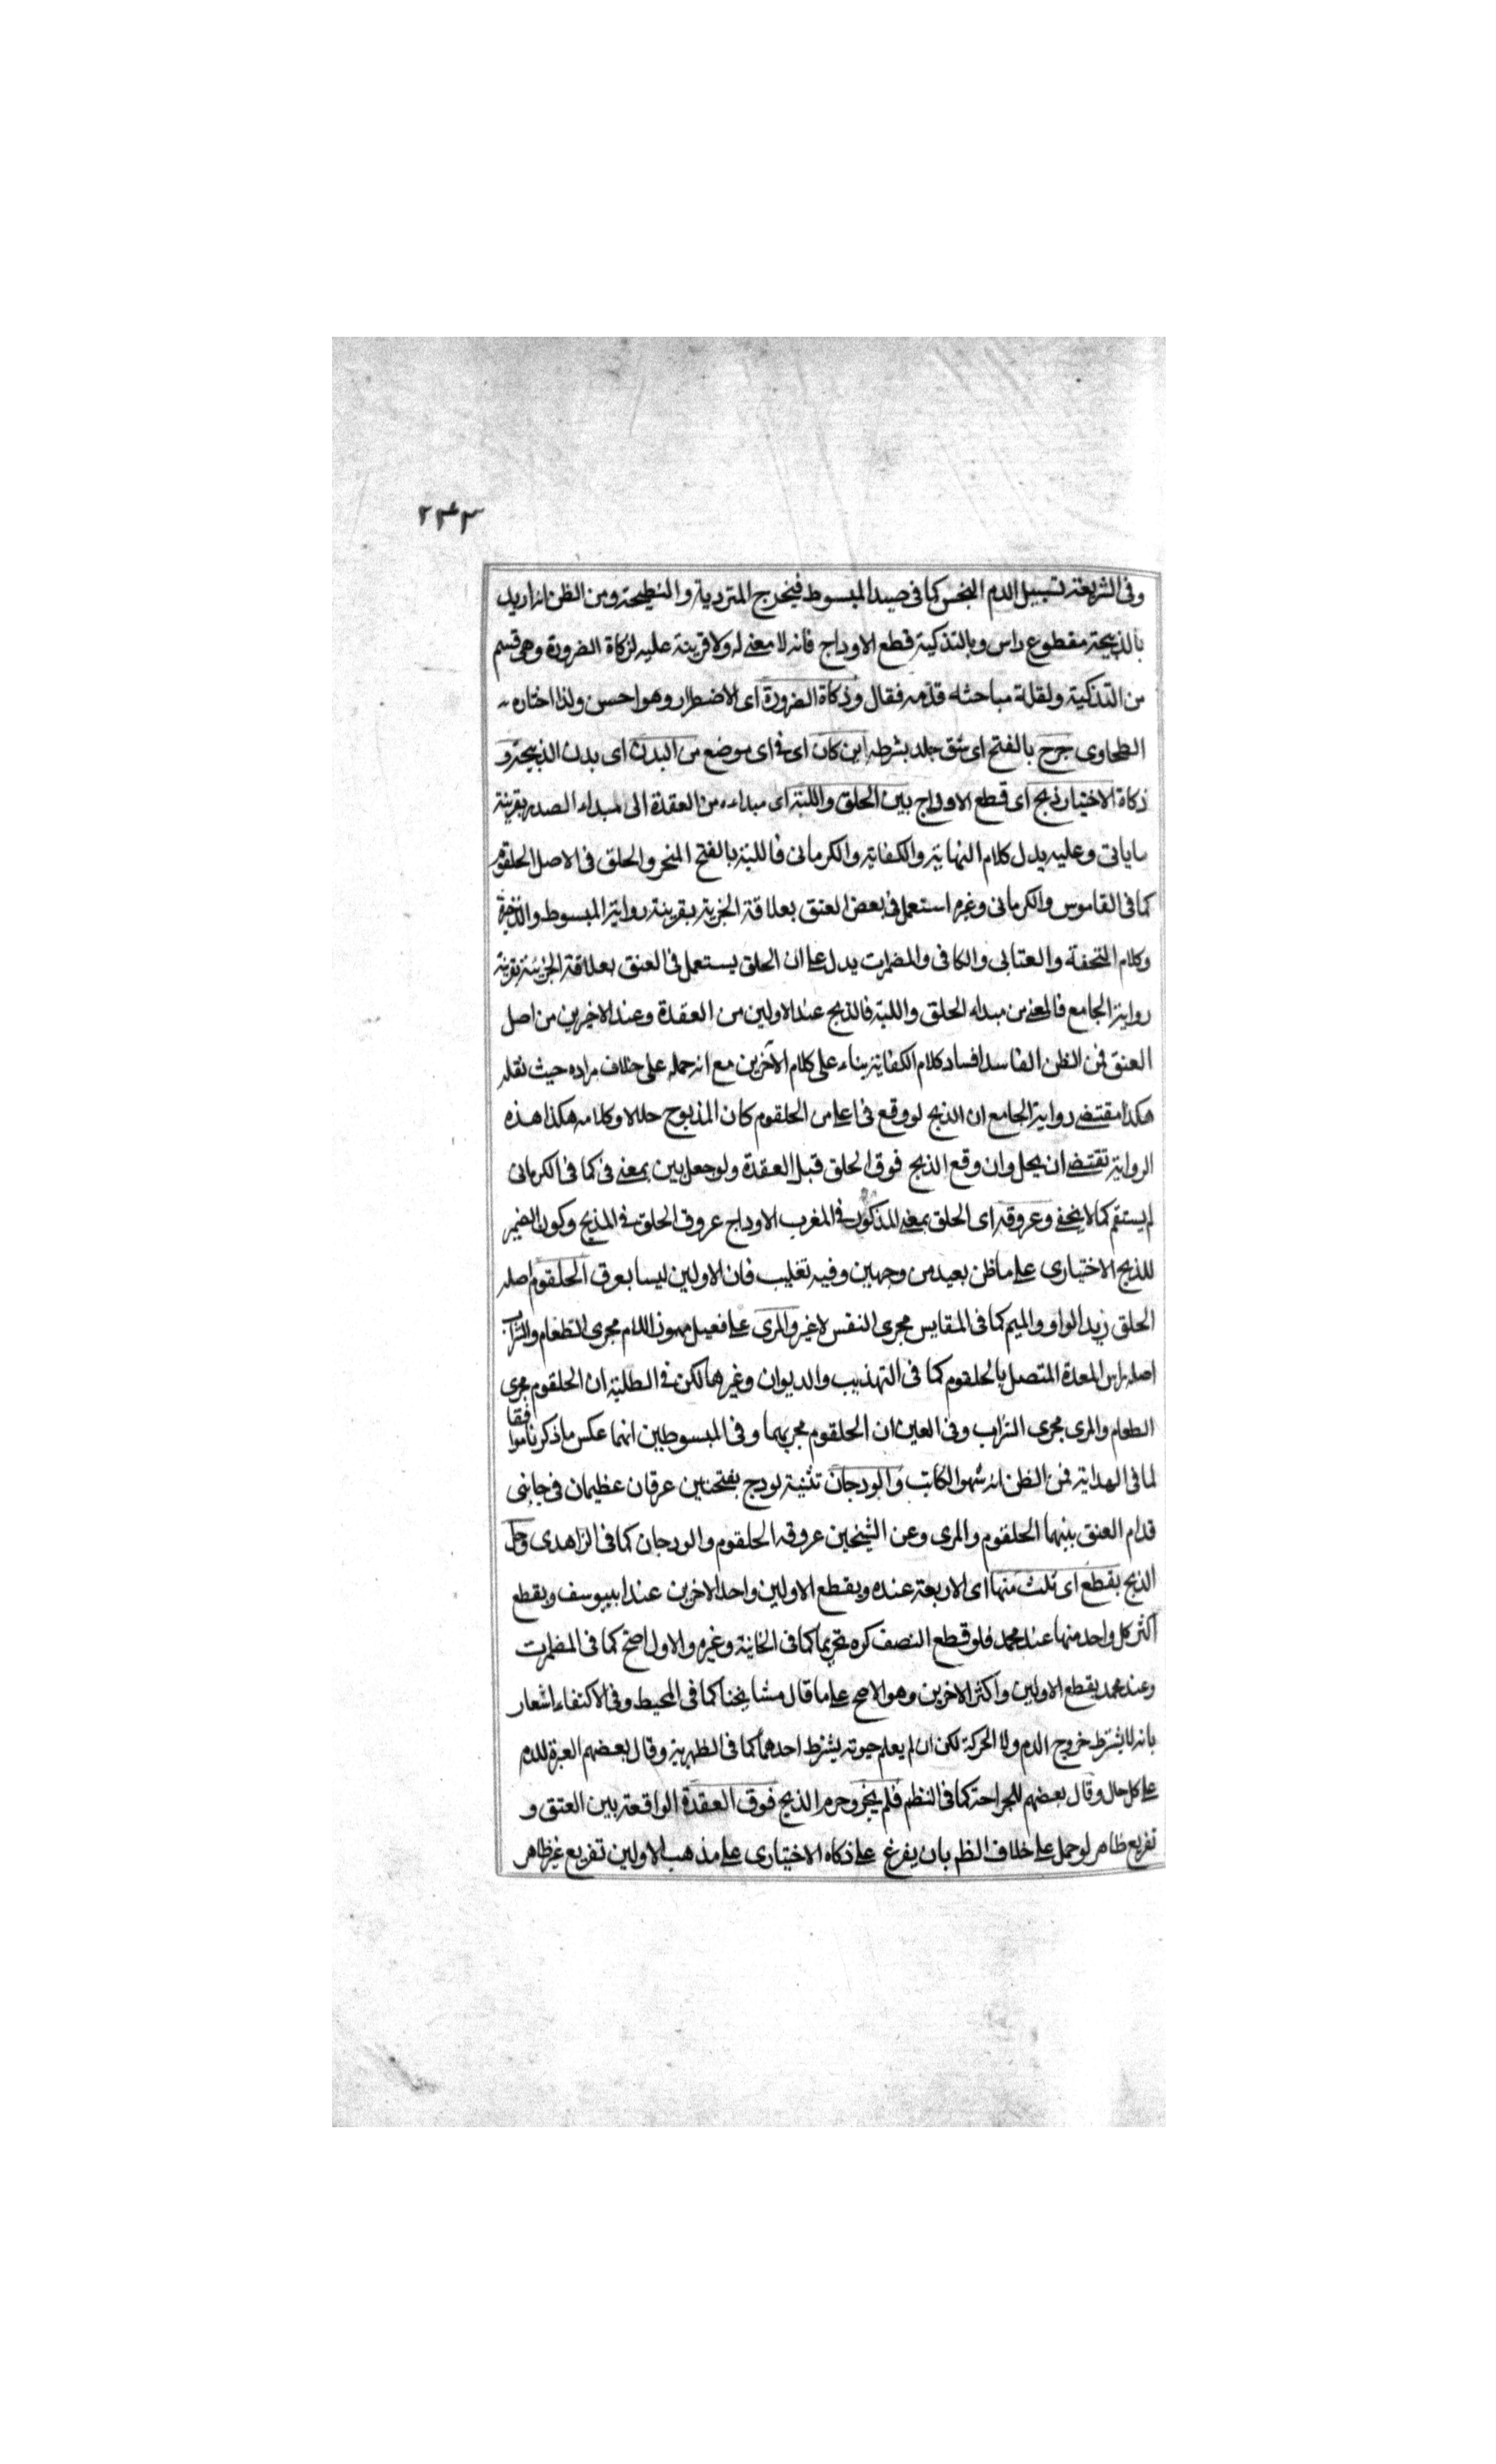 ٢٣٣
وفى الشريعة تسييل الدم النجس كما فى صيد المبسوط فيخرج المتردية والنطيحة ومن الظن انه اريد
بالذبيحة مقطوع راس وبالتذكية قطع الاوداج فانه لا معنى له ولا قرينة عليه لزكاة الضرورة وهى قسم
من التذكية ولقلة مباحثه قدمه فقال وذكاة الضرورة اى الاضطرار وهو احسن ولذا اختاره
الطحاوى جرح بالفتح اى شق جلد بشرطه اين كان اى فى اى موضع من البدن اى بدن الذبيحة و
ذكاة الاختيار ذبح اى قطع الاوداج بين الحلق واللبة اى مبداء من العقدة الى مبداء الصدر بقرينة
ماياتى وعليه يدل كلام النهاية والكفاية والكرمانى فاللبة بالفتح المنحر والحلق فى الاصل الحلقوم
كما فى القاموس والكرمانى وغيره استعمل فى بعض العنق بعلاقة الجزية بقرينة رواية المبسوط والذخيرة
وكلام التحفة والعتابى والكافى والمضمرات يدل على ان الحلق يستعمل فى العنق بعلاقة الجزئية بقرينة
رواية الجامع فالمعنى من مبداء الحلق واللبة فالذبح عند الاولين من العقدة وعند الاخيرين من اصل
العنق فمن الظن الفاسد افساد كلام الكفاية بناء على كلام الآخرين مع انه حمله على خلاف مراده حيث نقله
هكذا مقتضى رواية الجامع ان الذبح لو وقع فى اعلى من الحلقوم كان المذبوح حلالا وكلامه هكذا هذه
الرواية تقتضى ان يحل وان وقع الذبح فوق الحلق قبل العقدة ولو جعل بين بمعنى فى كما فى الكرمانى
لم يستقم كما لا يخفى وعروقه اى الحلق بمعنى المذكور فى المغرب الاوداج عروق الحلق فى المذبح وكون الضمير
للذبح الاختيارى على ما ظن بعيد من وجهين وفيه تغليب فان الاولين ليسا بعرق الحلقوم اصله
الحلق زيد الواو والميم كما فى المقايس مجرى النفس لا غير والمرى على فعيل مهموز اللام مجرى الطعام والشراب
اصله راس المعدة المتصل بالحلقوم كما فى التهذيب والديوان وغيرهما لكن فى الطلبة ان الحلقوم مجرى
الطعام والمرى مجرى الشراب وفى العين ان الحلقوم مجريهما وفى المبسوطين انهما عكس ما ذكرنا موافقا
لما فى الهداية فمن الظن انه سهو الكاتب والودجان تثنية لودج بفتحتين عرقان عظيمان فى جانبى
قدام العنق بينهما الحلقوم والمرى وعن الشيخين عروقه الحلقوم والودجان كما فى الزاهدى وحل
الذبح بقطع اى ثلث منها اى الاربعة عنده وبقطع الاولين واحد الاخرين عند ابيوسف وبقطع
اكثر كل واحد منها عند محمد فلو قطع النصف كره تحريما كما فى الخانية وغيره والاول اصح كما فى المضمرات
وعند محمد بقطع الاولين واكثر الاخرين وهو الاصح على ما قال مشايخنا كما فى المحيط وفى الاكتفاء اشعار
بانه لا يشترط خروج الدم ولا الحركة لكن ان لم يعلم حيوته يشترط احدهما كما فى الظهيرية وقال بعضهم العبرة للدم
على كل حال وقال بعضهم للجراحة كما فى النظم فلم يجز وحرم الذبح فوق العقدة الواقعة بين العنق و
تفريع ظاهر لو حمل على خلاف الظم بان يفرغ على ذكاه الاختيارى على مذهب الاولين تفريع غير ظاهر